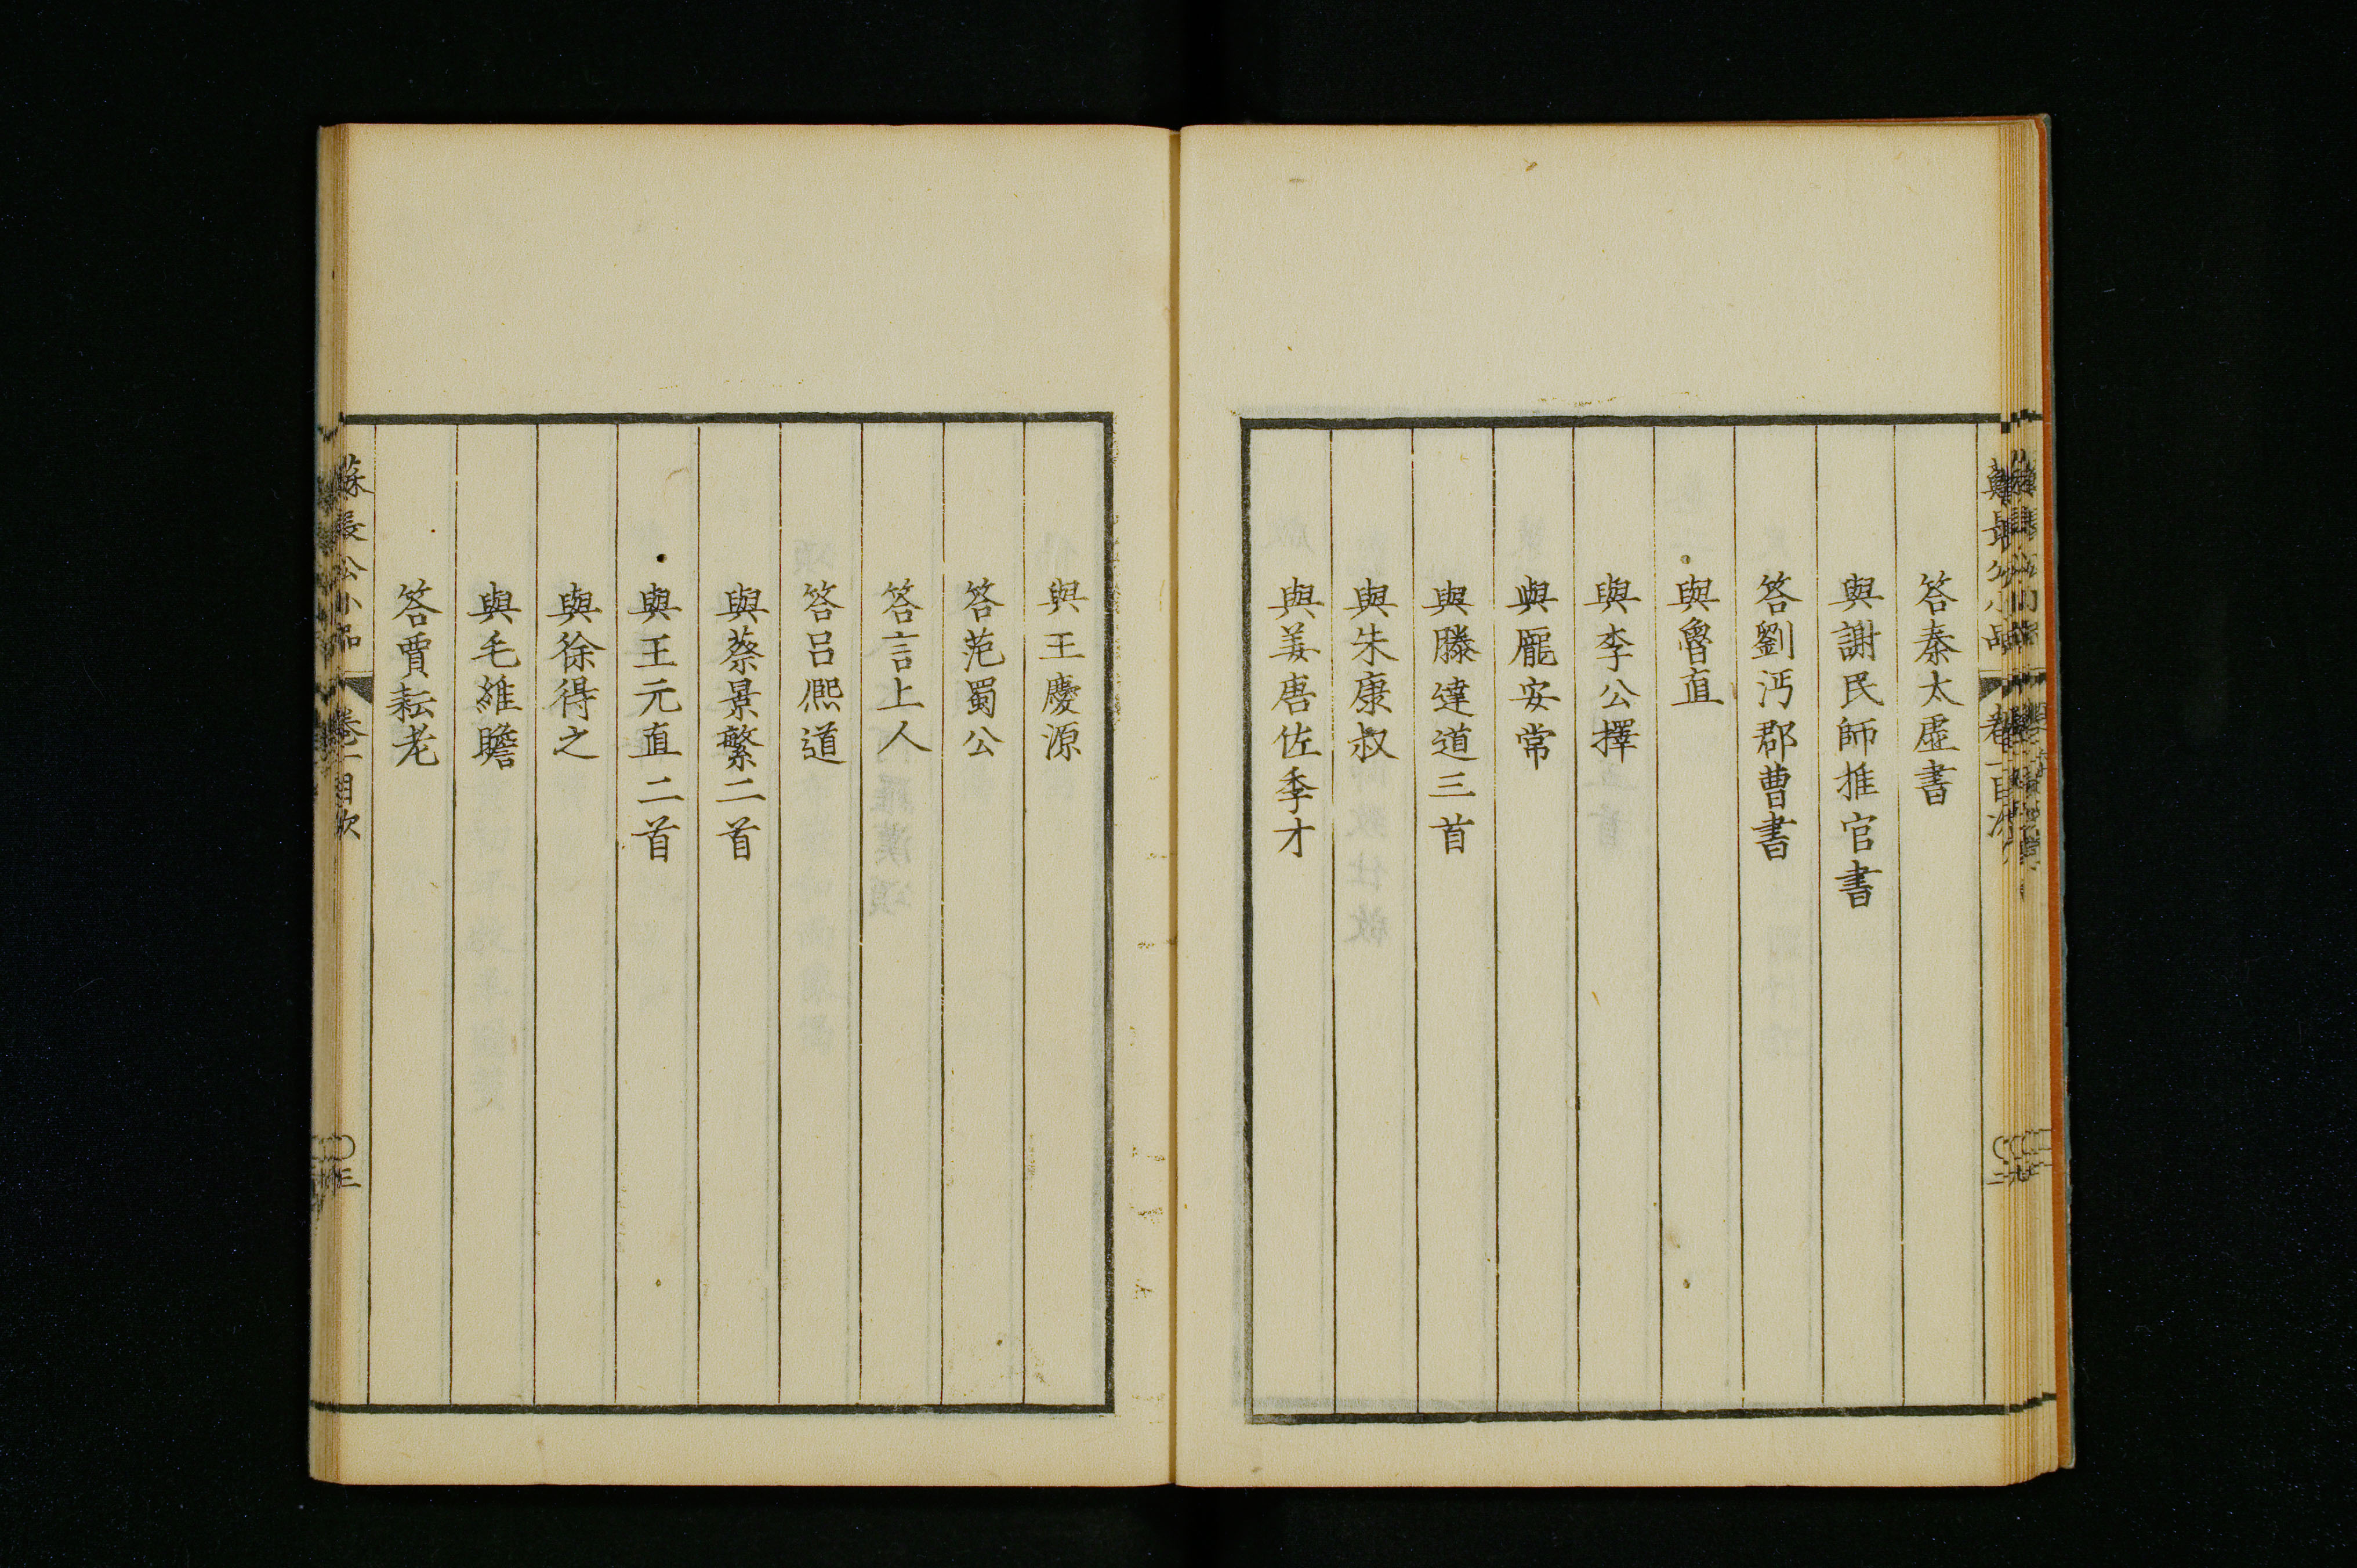 答秦太虛書
與謝民師推官書
答劉沔郡曹書
與魯直
與李公擇
與龐安常
與滕達道三首
與朱康叔
與姜唐佐季才
與王慶源
答范蜀公
答言上人
答呂熈道
與蔡景繁二首
與王元直二首
與徐得之
與毛維瞻
答賈耘老
蘇長公小品 卷一目次 三